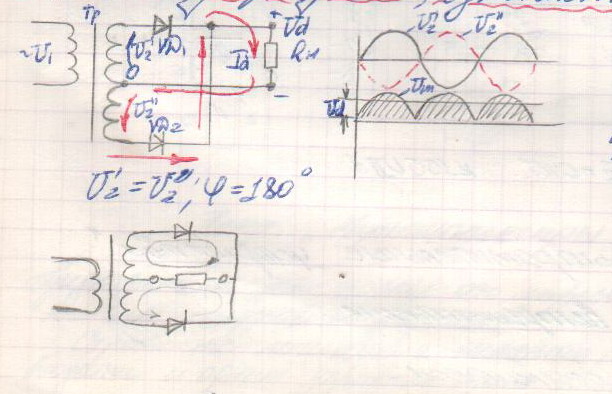 Тр
~U₁
U₂'
VD₁
0
U₂"
VD₂
Id
+
Ud
Rн
-
U₂' U₂"
Um
Ud
U₂' = U₂", φ = 180°